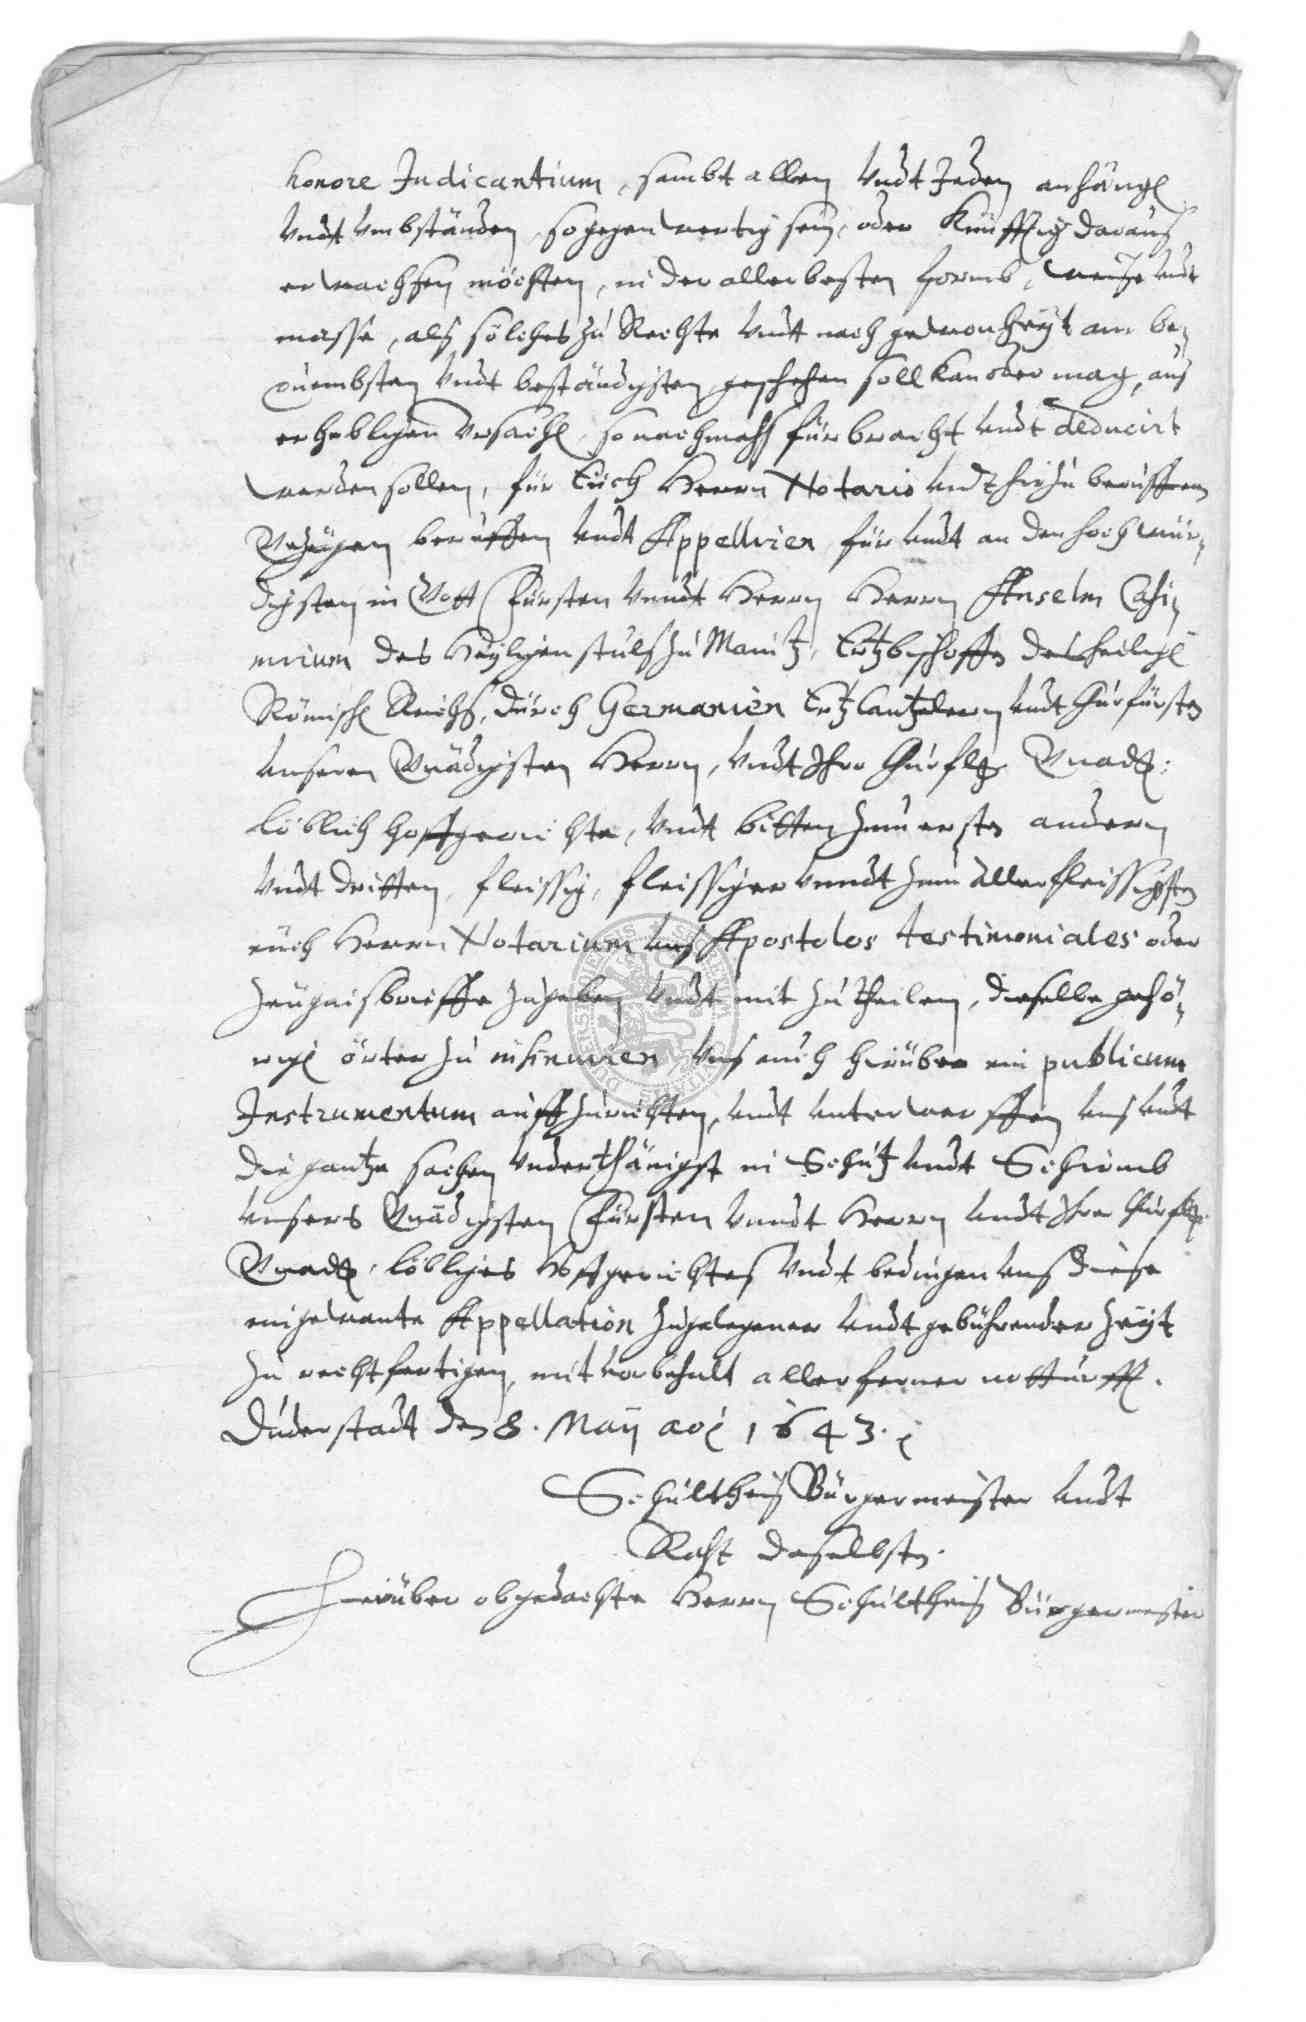 honore Judicantium, sambt allen Undt Jeden anhängl
Undt Umbständen, so gegenwertig sein, oder Künfftig daraus
erwachssen möchten, in der allerbesten formb, weise Undt
masse, als sölches zu Rechte Undt nach gewonheyt am be„
quembsten Undt beständigsten geschehen soll kan oder mag, aus
erheblichen Ursachen, so nachmahls fürbracht Undt deducirt
werden sollen, für Euch Herrn Notario Undt hirzu beruffenen
Gezeugen beruffen Undt Appelliren für Undt an den hochwür„
digsten in Gott Fürsten Unndt Herrn Herrn Anselm Casi„
mirum des Heyligen stuls zu Maintz, Ertzbischoffen des heiligen
Römischen Reichs, durch Germanien Ertzcantzlern Undt Churfürsten
Unseren Gnädigsten Herrn, Undt Ihre Churfl. Gnad.
löblich Hoffgerichte, Undt bitten zum ersten andern
Undt dritten, fleissig, fleissiger Unndt zum allerfleissigsten
euch Herrn Notarium Uns Apostolos testimoniales oder
zeugnisbrieffe zugeben Undt mit zu theilen, dieselbe gehö„
rigen örter zu insinuiren, Uns auch hirüber ein publicum
Instrumentum auffzurichten, Undt unterwerffen Uns Undt
die gantze sachen Underthänigst in Schutz Undt Schirmb
Unsers Gnädigsten Fürsten Unndt Herrn Undt Ihre Churfl.
Gnad. löbliches Hoffgerichtes Undt bedingen Uns diese
eingewante Appellation zugelegener Undt gebührender zeyt
zu rechtfertigen, mit vorbehalt aller ferner notturfft.
Duderstadt den 8. Maij aoi 1643.
Schultheis Bürgermeister Undt
Raht daselbsten.
Hirüber obgedachte Herrn Schultheis Bürgermeister